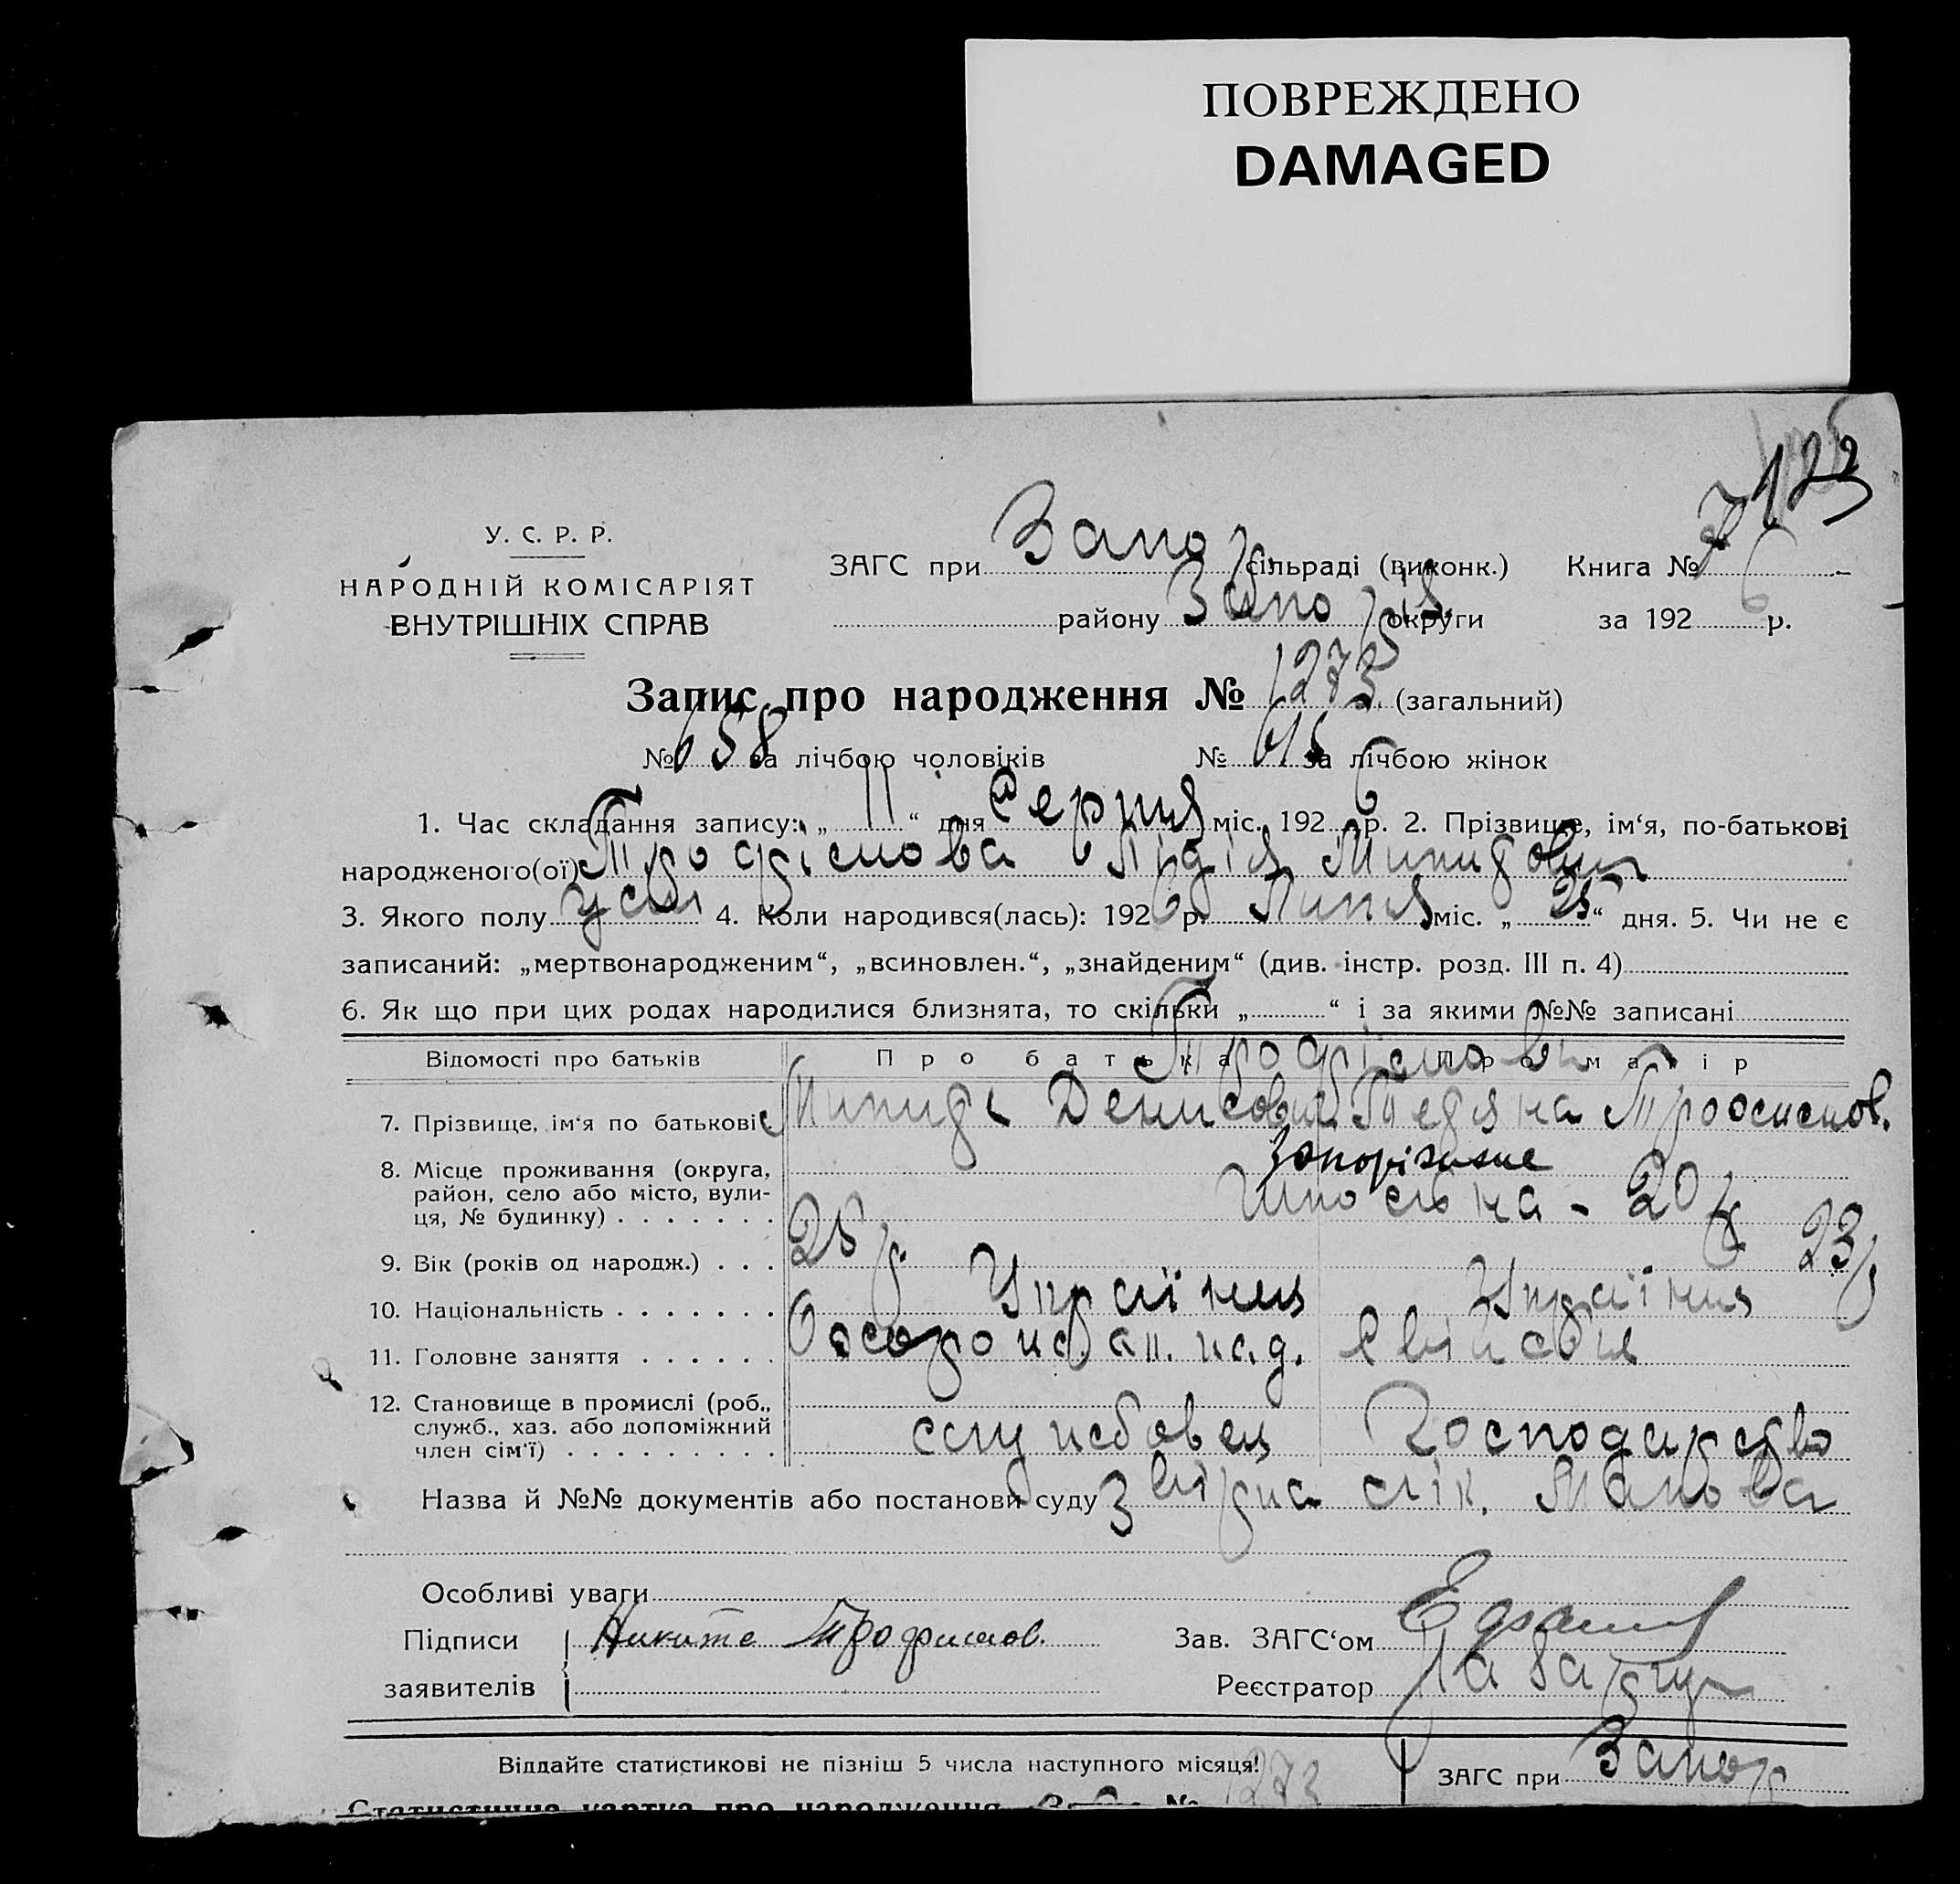 ПОВРЕЖДЕНО
DAMAGED
123
7
У. С. Р. Р.
НАРОДНІЙ КОМІСАРІЯТ
ВНУТРІШНІХ СПРАВ
ЗАГС при Запор сільраді (виконк.) Книга №
району Запоріз округи за 192 6 р.
Запис про народження № 1273 (загальний)
№ 658 за лічбою чоловіків № 615 за лічбою жінок
1. Час складання запису: „ 11 “ дня Серпня міс. 192 6 р. 2. Прізвище, ім‘я, по-батькові
народженого(ої) Трофімова Лідія
3. Якого полу 4. Коли народився(лась): 192 6 р. Липня міс. „ 25 “ дня. 5. Чи не є
записаний: „мертвонародженим“, „всиновлен.“, „знайденим“ (див. інстр. розд. III п. 4)
6. Як що при цих родах народилися близнята, то скільки „ “ і за якими №№ записані
Відомості про батьків Про батька Про матір
Трофімови
7. Прізвище, ім‘я по батькові Денисович
8. Місце проживання (округа, район, село або місто, вули-ця, № будинку) . . . . . . . Запоріжжє
20
9. Вік (років од народж.) . . . 28 р 23 р
10. Національність . . . . . . . Украінец Украінка
11. Головне заняття . . . . . .
12. Становище в промислі (роб., служб., хаз. або допоміжний член сім‘ї) . . . . . . . . . службовец Господарство
Назва й №№ документів або постанови суду
Особливі уваги
Підписи заявителів Никита Трофимов.
Зав. ЗАГС‘ом
Реєстратор
Віддайте статистикові не пізніш 5 числа наступного місяця! 1273
ЗАГС при Запор
Статистична картка про народження №